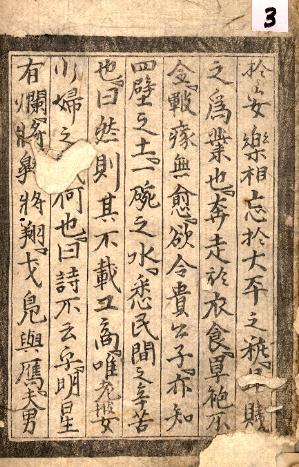 3
於安樂相忘於大平之賤
之爲業也奔走於衣食袍不
全皸瘃無愈欲令貴公子亦知
四壁之土一碗之水悉民間之辛苦
也曰然則其不載工商唯老婆
小婦之何也曰詩不云乎明星
有爛將翶將翔弋鳧與鴈夫男